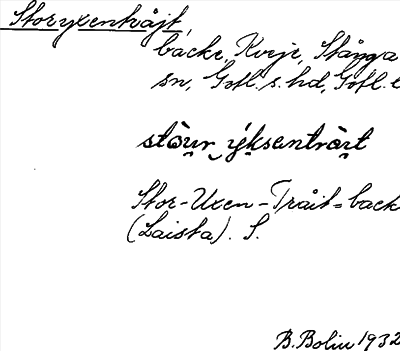 Storyxenträjt,
backe, Kvie, Stånga
sn, Gotl. s. hd, Gotl. l
stòu̯r ýksentràit
Stor-Uxen-Träit-back
(Laista). S.
B. Bolin 1932